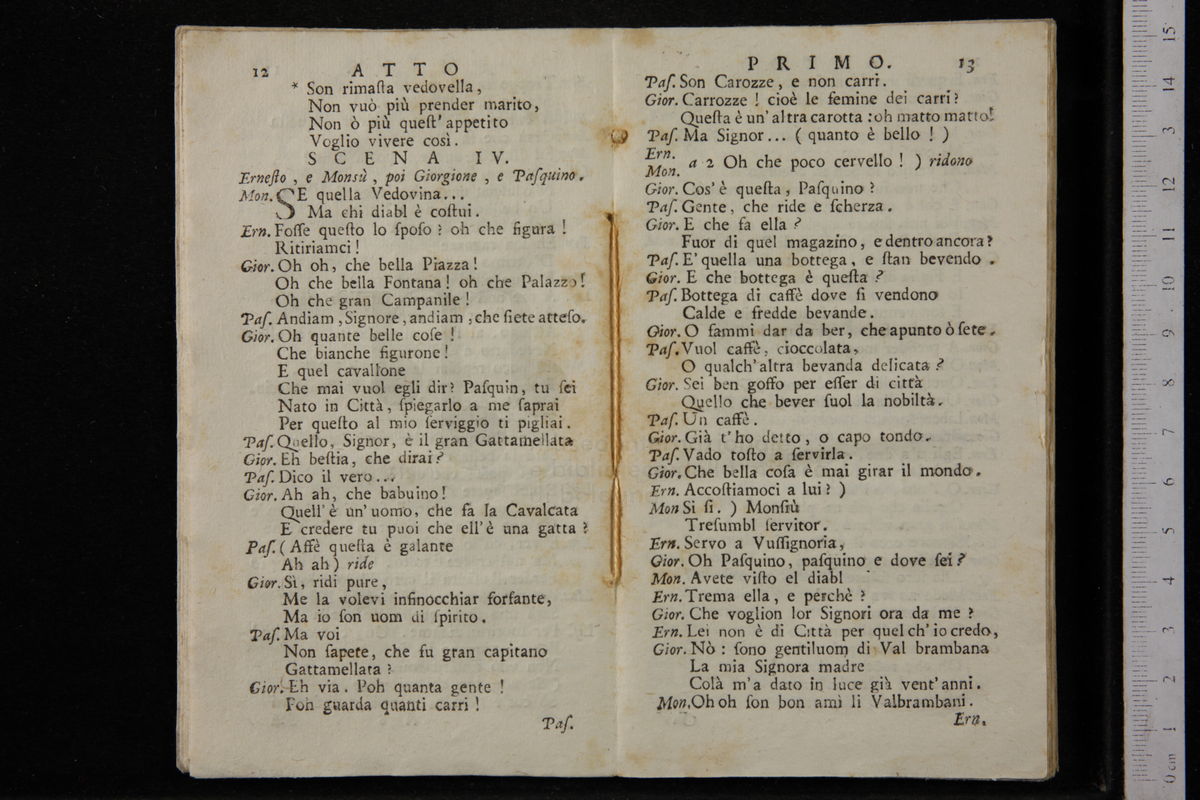 12 ATTO
* Son rimaſta vedovella,
Non vuò più prender marito,
Non ò più queſt' appetito
Voglio vivere così.
SCENA IV.
Erneſto, e Monsù, poi Giorgione, e Paſquino.
Mon. SE quella Vedovina...
Ma chi diabl è coſtui.
Ern. Foſſe queſto lo ſpoſo? oh che figura!
Ritiriamci!
Gior. Oh oh, che bella Piazza!
Oh che bella Fontana! oh che Palazzo!
Oh che gran Campanile!
Paſ. Andiam, Signore, andiam, che ſiete atteſo.
Gior. Oh quante belle coſe!
Che bianche figurone!
E quel cavallone
Che mai vuol egli dir? Paſquin, tu ſei
Nato in Città, ſpiegarlo a me ſaprai
Per queſto al mio ſerviggio ti pigliai.
Paſ. Quello, Signor, è il gran Gattamellata
Gior. Eh beſtia, che dirai?
Paſ. Dico il vero...
Gior. Ah ah, che babuino!
Quell' è un' uomo, che fa la Cavalcata
E credere tu puoi che ell' è una gatta?
Paſ. (Affè queſta è galante
Ah ah) ride
Gior. Sì, ridi pure,
Me la volevi infinocchiar forfante,
Ma io ſon uom di ſpirito.
Paſ. Ma voi
Non ſapete, che fu gran capitano
Gattamellata?
Gior. Eh via. Poh quanta gente!
Poh guarda quanti carri!
Paſ.
PRIMO. 13
Paſ. Son Carozze, e non carri.
Gior. Carrozze! cioè le femine dei carri?
Queſta è un' altra carotta: oh matto matto!
Paſ. Ma Signor... (quanto è bello!)
Ern.
Mon. a 2 Oh che poco cervello!) ridono
Gior. Cos' è queſta, Paſquino?
Paſ. Gente, che ride e ſcherza.
Gior. E che fa ella?
Fuor di quel magazino, e dentro ancora?
Paſ. E' quella una bottega, e ſtan bevendo.
Gior. E che bottega è queſta?
Paſ. Bottega di caffè dove ſi vendono
Calde e fredde bevande.
Gior. O fammi dar da ber, che apunto ò ſete.
Paſ. Vuol caffè, cioccolata,
O qualch' altra bevanda delicata?
Gior. Sei ben goffo per eſſer di città
Quello che bever ſuol la nobiltà.
Paſ. Un caffè.
Gior. Già t' ho detto, o capo tondo.
Paſ. Vado toſto a ſervirla.
Gior. Che bella coſa è mai girar il mondo.
Ern. Accoſtiamoci a lui?)
Mon Si ſi.) Monſiù
Treſumbl ſervitor.
Ern. Servo a Vuſſignoria,
Gior. Oh Paſquino, paſquino e dove ſei?
Mon. Avete viſto el diabl
Ern. Trema ella, e perchè?
Gior. Che voglion lor Signori ora da me?
Ern. Lei non è di Città per quel ch' io credo,
Gior. Nò: ſono gentiluom di Val brambana
La mia Signora madre
Colà m'a dato in luce già vent' anni.
Mon. Oh oh ſon bon ami li Valbrambani.
Ern.